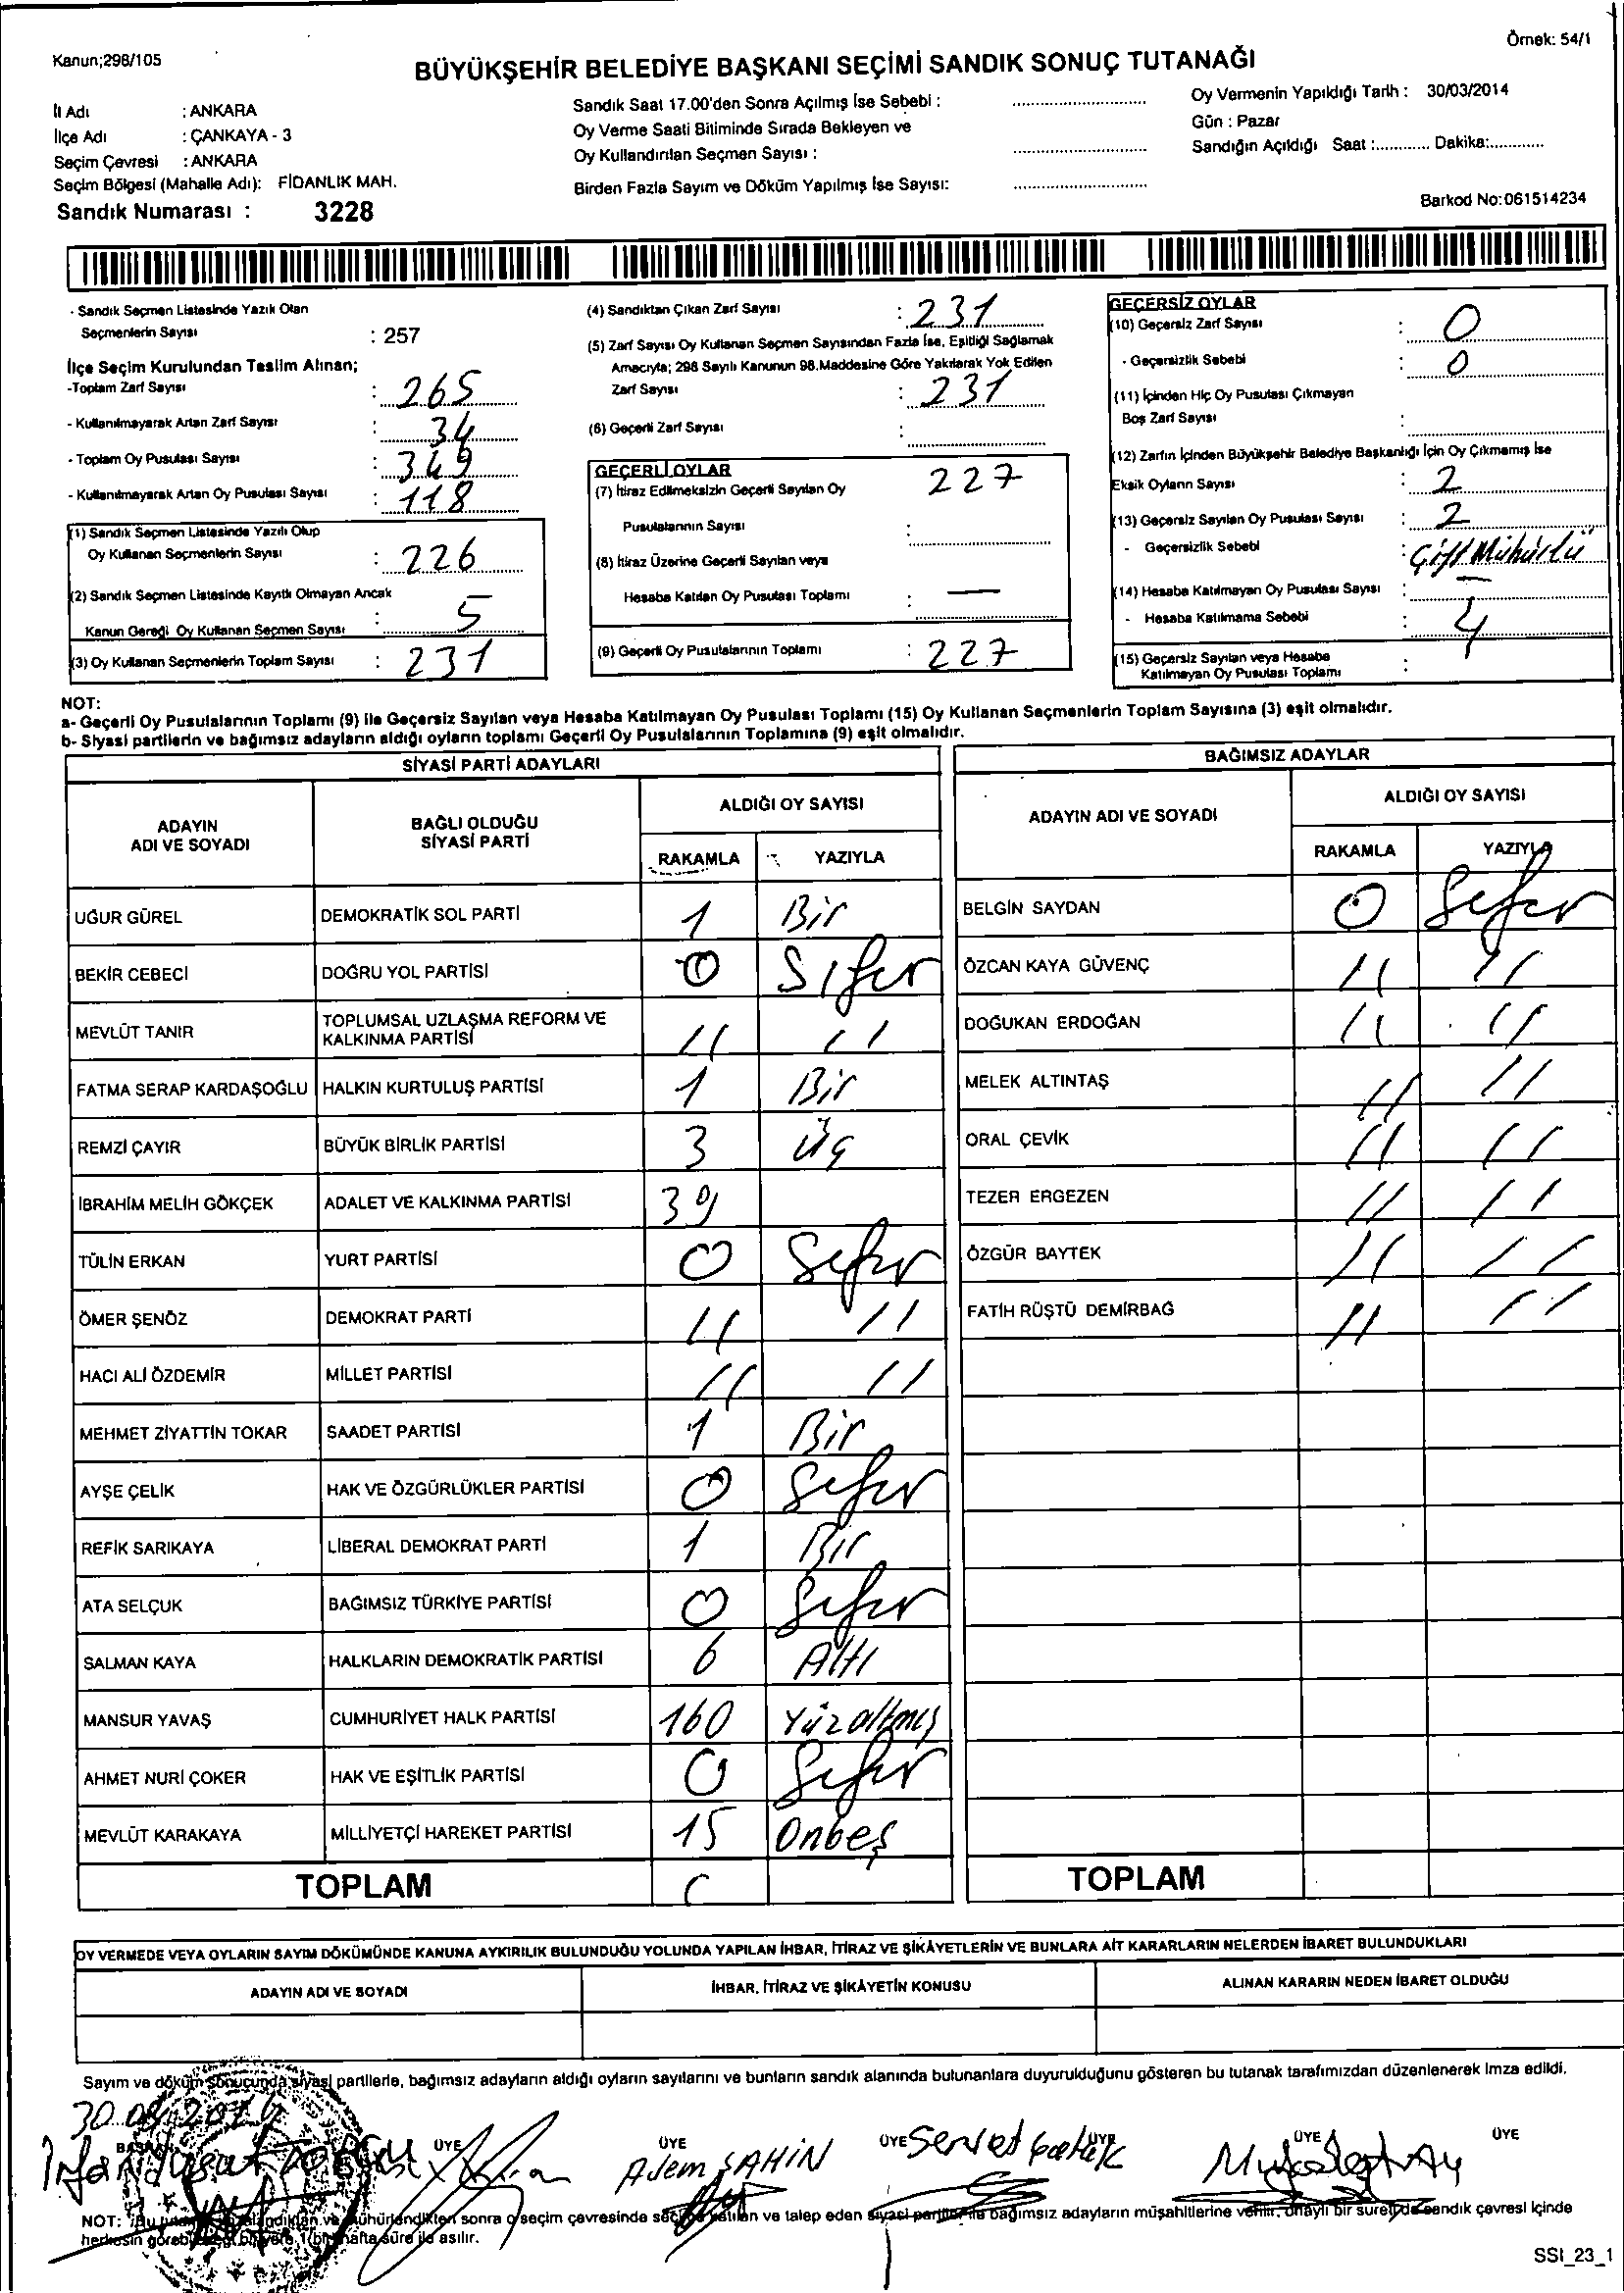 Kanun;298/105
Örnek: 54/1
BÜYÜKŞEHİR BELEDİYE BAŞKANI SEÇİMİ SANDIK SONUÇ TUTANAĞI
İl Adı : ANKARA
İlçe Adı : ÇANKAYA - 3
Seçim Çevresi : ANKARA
Seçim Bölgesi (Mahalle Adı): FİDANLIK MAH.
Sandık Numarası : 3228
Sandık Saat 17.00'den Sonra Açılmış İse Sebebi :
Oy Verme Saati Bitiminde Sırada Bekleyen ve
Oy Kullandırılan Seçmen Sayısı :
Birden Fazla Sayım ve Döküm Yapılmış İse Sayısı:
Oy Vermenin Yapıldığı Tarih : 30/03/2014
Gün : Pazar
Sandığın Açıldığı Saat :............ Dakika:............
Barkod No:061514234
- Sandık Seçmen Listesinde Yazılı Olan
Seçmenlerin Sayısı : 257
İlçe Seçim Kurulundan Teslim Alınan;
-Toplam Zarf Sayısı : 265
- Kullanılmayarak Artan Zarf Sayısı : 34
- Toplam Oy Pusulası Sayısı : 349
- Kullanılmayarak Artan Oy Pusulası Sayısı : 118
(1) Sandık Seçmen Listesinde Yazılı Olup
Oy Kullanan Seçmenlerin Sayısı : 226
(2) Sandık Seçmen Listesinde Kayıtlı Olmayan Ancak
Kanun Gereği Oy Kullanan Seçmen Sayısı : 5
(3) Oy Kullanan Seçmenlerin Toplam Sayısı : 231
(4) Sandıktan Çıkan Zarf Sayısı : 231
(5) Zarf Sayısı Oy Kullanan Seçmen Sayısından Fazla İse, Eşitliği Sağlamak
Amacıyla; 298 Sayılı Kanunun 98.Maddesine Göre Yakılarak Yok Edilen
Zarf Sayısı : 231
(6) Geçerli Zarf Sayısı :
GEÇERLİ OYLAR
(7) İtiraz Edilmeksizin Geçerli Sayılan Oy 227
Pusulalarının Sayısı :
(8) İtiraz Üzerine Geçerli Sayılan veya
Hesaba Katılan Oy Pusulası Toplamı : —
(9) Geçerli Oy Pusulalarının Toplamı : 227
GEÇERSİZ OYLAR
(10) Geçersiz Zarf Sayısı : 0
- Geçersizlik Sebebi : 0
(11) İçinden Hiç Oy Pusulası Çıkmayan
Boş Zarf Sayısı :
(12) Zarfın İçinden Büyükşehir Belediye Başkanlığı İçin Oy Çıkmamış İse
Eksik Oyların Sayısı : 2
(13) Geçersiz Sayılan Oy Pusulası Sayısı : 2
- Geçersizlik Sebebi : Çift Mühürlü
(14) Hesaba Katılmayan Oy Pusulası Sayısı : —
- Hesaba Katılmama Sebebi : 4
(15) Geçersiz Sayılan veya Hesaba
Katılmayan Oy Pusulası Toplamı :
NOT:
a- Geçerli Oy Pusulalarının Toplamı (9) ile Geçersiz Sayılan veya Hesaba Katılmayan Oy Pusulası Toplamı (15) Oy Kullanan Seçmenlerin Toplam Sayısına (3) eşit olmalıdır.
b- Siyasi partilerin ve bağımsız adayların aldığı oyların toplamı Geçerli Oy Pusulalarının Toplamına (9) eşit olmalıdır.
SİYASİ PARTİ ADAYLARI
ADAYIN
ADI VE SOYADI
BAĞLI OLDUĞU
SİYASİ PARTİ
ALDIĞI OY SAYISI
RAKAMLA YAZIYLA
UĞUR GÜREL DEMOKRATİK SOL PARTİ 1 Bir
BEKİR CEBECİ DOĞRU YOL PARTİSİ 0 Sıfır
MEVLÜT TANIR TOPLUMSAL UZLAŞMA REFORM VE
KALKINMA PARTİSİ // //
FATMA SERAP KARDAŞOĞLU HALKIN KURTULUŞ PARTİSİ 1 Bir
REMZİ ÇAYIR BÜYÜK BİRLİK PARTİSİ 3 Üç
İBRAHİM MELİH GÖKÇEK ADALET VE KALKINMA PARTİSİ 39
TÜLİN ERKAN YURT PARTİSİ 0 Sıfır
ÖMER ŞENÖZ DEMOKRAT PARTİ // //
HACI ALİ ÖZDEMİR MİLLET PARTİSİ // //
MEHMET ZİYATTİN TOKAR SAADET PARTİSİ 1 Bir
AYŞE ÇELİK HAK VE ÖZGÜRLÜKLER PARTİSİ 0 Sıfır
REFİK SARIKAYA LİBERAL DEMOKRAT PARTİ 1 Bir
ATA SELÇUK BAĞIMSIZ TÜRKİYE PARTİSİ 0 Sıfır
SALMAN KAYA HALKLARIN DEMOKRATİK PARTİSİ 6 Altı
MANSUR YAVAŞ CUMHURİYET HALK PARTİSİ 160 Yüzaltmış
AHMET NURİ ÇOKER HAK VE EŞİTLİK PARTİSİ 0 Sıfır
MEVLÜT KARAKAYA MİLLİYETÇİ HAREKET PARTİSİ 15 Onbeş
TOPLAM
BAĞIMSIZ ADAYLAR
ADAYIN ADI VE SOYADI
ALDIĞI OY SAYISI
RAKAMLA YAZIYLA
BELGİN SAYDAN 0 Sıfır
ÖZCAN KAYA GÜVENÇ // //
DOĞUKAN ERDOĞAN // //
MELEK ALTINTAŞ // //
ORAL ÇEVİK // //
TEZER ERGEZEN // //
ÖZGÜR BAYTEK // //
FATİH RÜŞTÜ DEMİRBAĞ // //
TOPLAM
OY VERMEDE VEYA OYLARIN SAYIM DÖKÜMÜNDE KANUNA AYKIRILIK BULUNDUĞU YOLUNDA YAPILAN İHBAR, İTİRAZ VE ŞİKAYETLERİN VE BUNLARA AİT KARARLARIN NELERDEN İBARET BULUNDUKLARI
ADAYIN ADI VE SOYADI İHBAR, İTİRAZ VE ŞİKAYETİN KONUSU ALINAN KARARIN NEDEN İBARET OLDUĞU
Sayım ve döküm sonucunda siyasi partilerle, bağımsız adayların aldığı oyların sayılarını ve bunların sandık alanında bulunanlara duyurulduğunu gösteren bu tutanak tarafımızdan düzenlenerek imza edildi.
BAŞKAN ÜYE ÜYE ÜYE ÜYE ÜYE ÜYE
Adem ŞAHİN Servet
NOT: Bu sonra o seçim çevresinde seçime katılan ve talep eden siyasi partiler ile bağımsız adayların müşahitlerine verilir. Onaylı bir sureti de sandık çevresi içinde
herkesin hafta süre ile asılır.
SSI_23_1